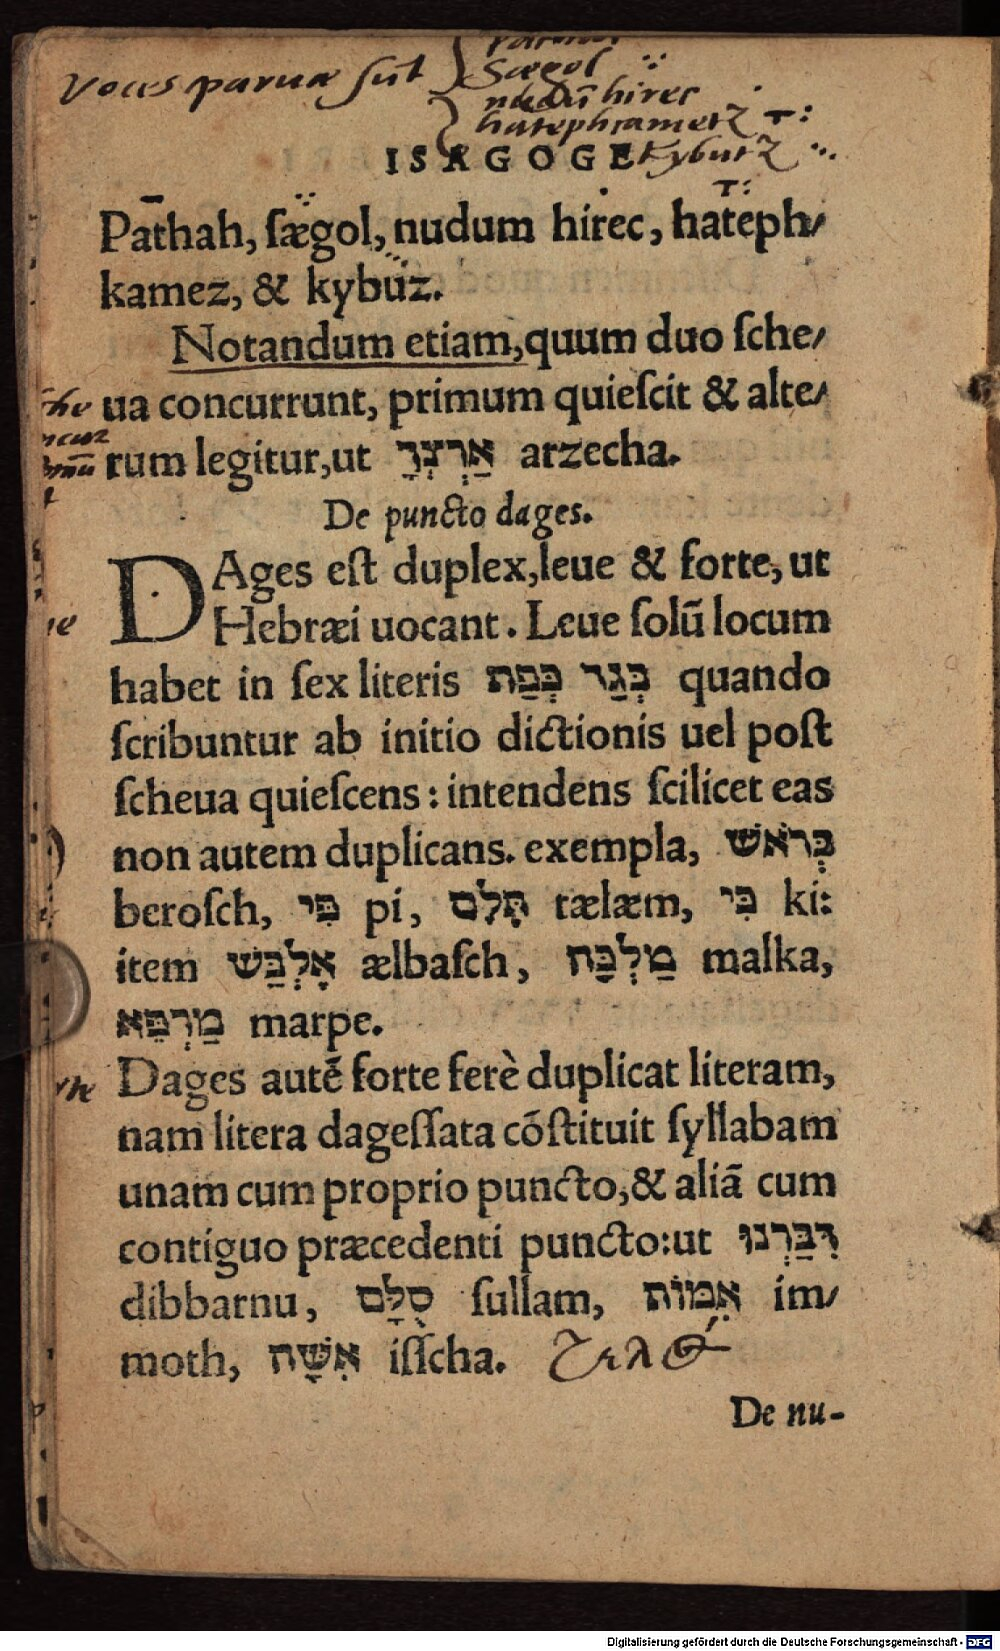 Voces paruæ sūt
Sægol
nudū hirec
hatephcametz
ISAGOGE Kybutz
Pathah, ſægol, nudum hirec, hateph/
kamez, & kybuz.
Notandum etiam, quum duo ſche/
ua concurrunt, primum quieſcit & alte/
rum legitur, ut אַרְצְךָ arzecha.
De puncto dages.
DAges eſt duplex, leue & forte, ut
Hebræi uocant. Leue ſolū locum
habet in ſex literis בְּגַד כְּפַת quando
ſcribuntur ab initio dictionis uel poſt
ſcheua quieſcens: intendens ſcilicet eas
non autem duplicans. exempla, בְּרֹאשׁ
beroſch, פִּי pi, תָּלֶם tælæm, כִּי ki:
item אָלְבַּשׁ ælbaſch, מַלְכָּה malka,
מַרְפֵּא marpe.
Dages autē forte ferè duplicat literam,
nam litera dageſſata cōſtituit ſyllabam
unam cum proprio puncto, & aliā cum
contiguo præcedenti puncto: ut דִּבַּרְנוּ
dibbarnu, סֻלָּם ſullam, אִמּוֹת im/
moth, אִשָּׁה iſſcha.
De nu-
Digitalisierung gefördert durch die Deutsche Forschungsgemeinschaft - DFG